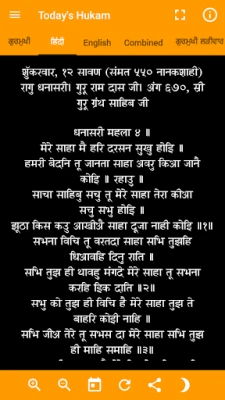 Today's Hukam
ਗੁਰਮੁਖੀ हिंदी English Combined ਗੁਰਮੁਖੀ ਲੜੀਵਾਰ
शुंकरवार, १२ सावण (संमत ५५० नानकशाही)
रागु धनासरी। गुरू राम दास जी। अंग ६७०, स्री
गुरू ग्रंथ साहिब जी
धनासरी महला ४ ॥
मेरे साहा मै हरि दरसन सुखु होइ ॥
हमरी बेदनि तू जानता साहा अवरु किआ जानै
कोइ ॥ रहाउ ॥
साचा साहिबु सचु तू मेरे साहा तेरा कीआ
सचु सभु होइ ॥
झूठा किस कउ आखीऐ साहा दूजा नाही कोइ ॥१॥
सभना विचि तू वरतदा साहा सभि तुझहि
धिआवहि दिनु राति ॥
सभि तुझ ही थावहु मंगदे मेरे साहा तू सभना
करहि इक दाति ॥२॥
सभु को तुझ ही विचि है मेरे साहा तुझ ते
बाहरि कोई नाहि ॥
सभि जीअ तेरे तू सभस दा मेरे साहा सभि तुझ
ही माहि समाहि ॥३॥